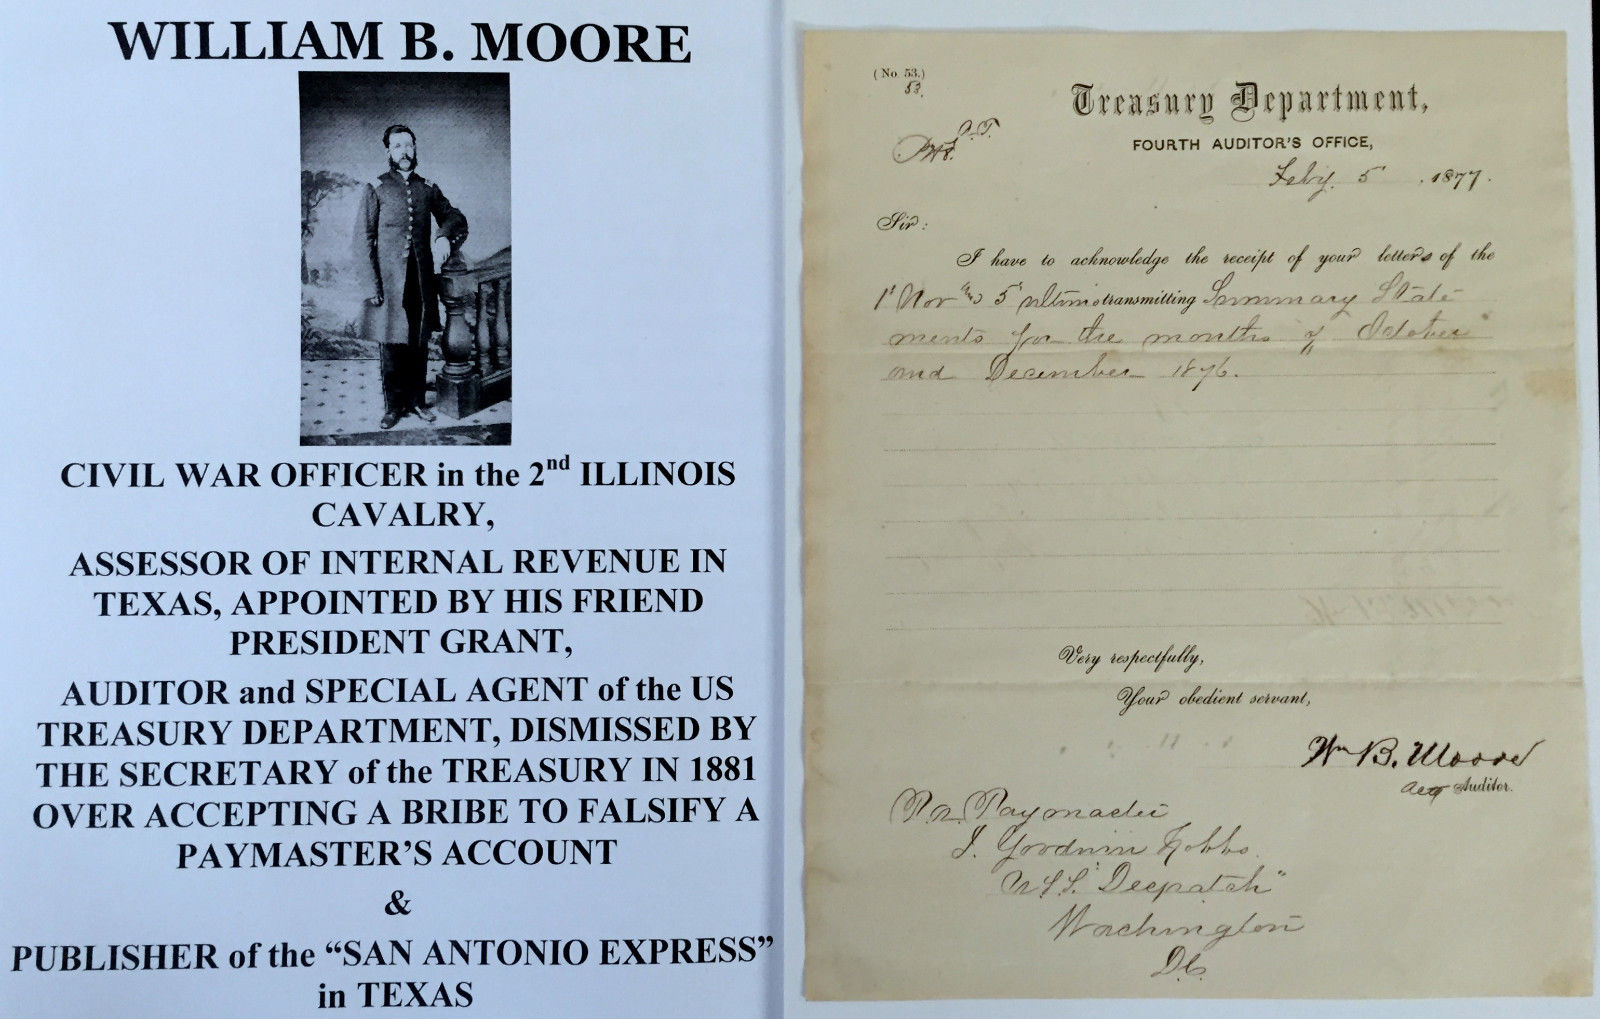 WILLIAM B. MOORE
CIVIL WAR OFFICER in the 2nd ILLINOIS
CAVALRY,
ASSESSOR OF INTERNAL REVENUE IN
TEXAS, APPOINTED BY HIS FRIEND
PRESIDENT GRANT,
AUDITOR and SPECIAL AGENT of the US
TREASURY DEPARTMENT, DISMISSED BY
THE SECRETARY of the TREASURY IN 1881
OVER ACCEPTING A BRIBE TO FALSIFY A
PAYMASTER'S ACCOUNT
&
PUBLISHER of the “SAN ANTONIO EXPRESS”
in TEXAS
(No. 53.)
53.
Treasury Department,
FOURTH AUDITOR'S OFFICE,
Feby. 5, 1877.
Sir:
I have to acknowledge the receipt of your letters of the
1st Nov and 5 ultimo transmitting Summary State-
ments for the months of October
and December 1876.
Very respectfully,
Your obedient servant,
Wm B. Moore
Actg Auditor.
Paymaster
J. Goodwin Hobbs.
U.S.S. "Despatch"
Washington
D.C.